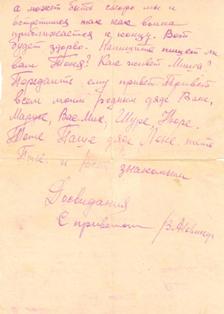 а может быть скоро мы и
встретимся так как война
приближается к концу. Вот
будет здорово. Напишите пишет ли
вам Тоня? Как живет Миша?
Передайте ему привет. Привет
всем моим родным дяде Ване,
Марусе, Шуре,
Паше дяде Лёне тёте
и всем знакомым
Досвидания
С приветом